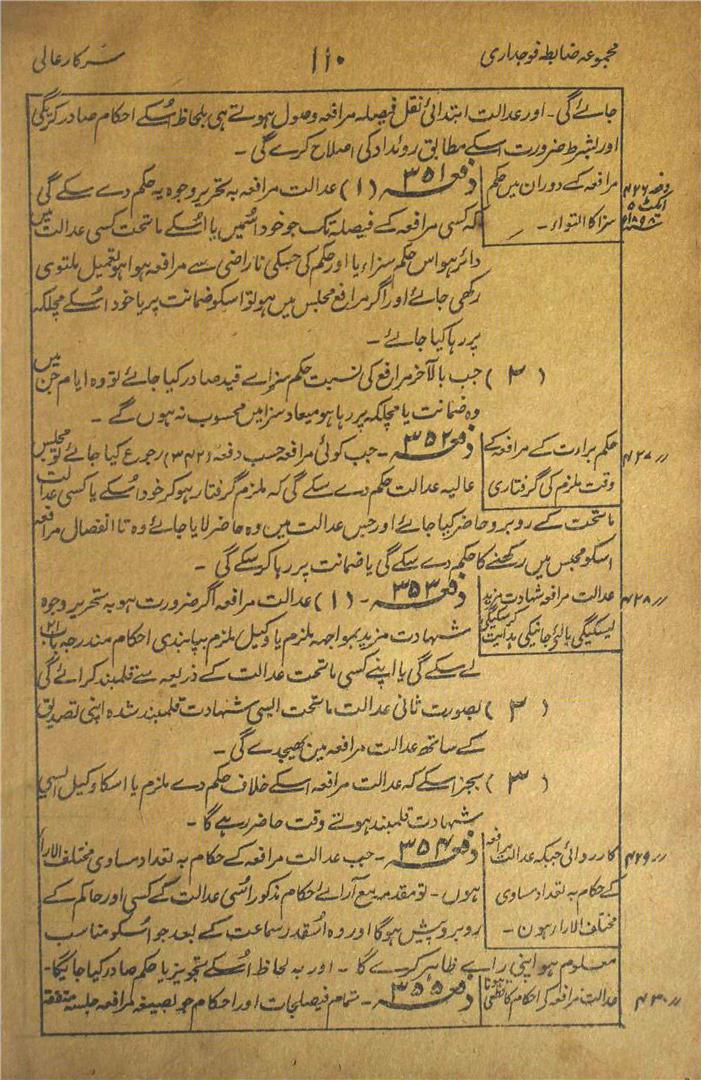 مجموعہ ضابطہ فوجداری
۱۱۰
سرکار عالی
جائے گی۔ اور عدالت ابتدائی نقل فیصلہ مرافعہ وصول ہوتے ہی بلحاظ اُسکے احکام صادر کریگی
اور بشرط ضرورت اسکے مطابق روئداد کی اصلاح کرے گی۔
دفعہ ۴۲۶
ایکٹ ۵
۱۸۹۸ء
مرافعہ کے دوران میں حکم
سزا کا التواء۔
دفعہ ۳۵۱ (۱) عدالت مرافعہ بہ تحریر وجوہ یہ حکم دے سکے گی
کہ کسی مرافعہ کے فیصلہ تک جو خود اُسمیں یا اُسکے ماتحت کسی عدالت میں
دائر ہو اس حکم سزاء یا اور حکم کی جسکی ناراضی سے مرافعہ ہوا ہو تعمیل ملتوی
رکھی جائے اور اگر مرافع مجلس میں ہو تو اسکو ضمانت پر یا خود اُسکے مچلکہ
پر رہا کیا جائے۔
(۲) جب بالآخر مرافع کی نسبت حکم سزاے قید صادر کیا جائے تو وہ ایام جن میں
وہ ضمانت یا مچلکہ پر رہا ہو میعاد سزا میں محسوب نہ ہوں گے۔
〃 ۴۲۷
حکم براءت کے مرافعہ کے
وقت ملزم کی گرفتاری
دفعہ ۳۵۲۔ جب کوئی مرافعہ حسب دفعہ (۳۴۲) رجوع کیا جائے تو مجلس
عالیہ عدالت حکم دے سکے گی کہ ملزم گرفتار ہو کر خود اُسکے یا کسی عدالت
ماتحت کے روبرو حاضر کیا جائے اور جس عدالت میں وہ حاضر لایا جائے وہ تا انفصال مرافعہ
اسکو مجلس میں رکھنے کا حکم دے سکے گی یا ضمانت پر رہا کر سکے گی۔
〃 ۴۲۸
عدالت مرافعہ شہادت مزید
لیسکیگی یا لئے جانیکی ہدایت کرسکیگی
دفعہ ۳۵۳۔ (۱) عدالت مرافعہ اگر ضرورت ہو بہ تحریر وجوہ
شہادت مزید بمواجہہ ملزم یا وکیل ملزم بپابندی احکام مندرجہ باب (۲۱)
لے سکے گی یا اپنے کسی ماتحت عدالت کے ذریعہ سے قلمبند کرائے گی
(۲) بصورت ثانی عدالت ماتحت ایسی شہادت قلمبند شدہ اپنی تصدیق
کے ساتھ عدالت مرافعہ میں بھیجدے گی۔
(۳) بجز اسکے کہ عدالت مرافعہ اسکے خلاف حکم دے ملزم یا اسکا وکیل ایسی
شہادت قلمبند ہوتے وقت حاضر رہے گا۔
〃 ۴۲۹
کارروائی جبکہ عدالت مرافعہ
کے حکام بہ تعداد مساوی
مختلف الارا ہون۔
دفعہ ۳۵۴۔ جب عدالت مرافعہ کے حکام بہ تعداد مساوی مختلف الارا
ہوں۔ تو مقدمہ مع آراے حکام مذکور اُسی عدالت کے کسی اور حاکم کے
روبرو پیش ہوگا اور وہ اُسقدر سماعت کے بعد جو اُسکو مناسب
معلوم ہو اپنی راے ظاہر کرے گا۔ اور بہ لحاظ اُسکے تجویز یا حکم صادر کیا جائیگا۔
〃 ۴۳۰
عدالت مرافعہ کے احکام کا قطعی ہونا
دفعہ ۳۵۵۔ تمام فیصلجات اور احکام جو بصیغہ مرافعہ جلسہ متفقہ